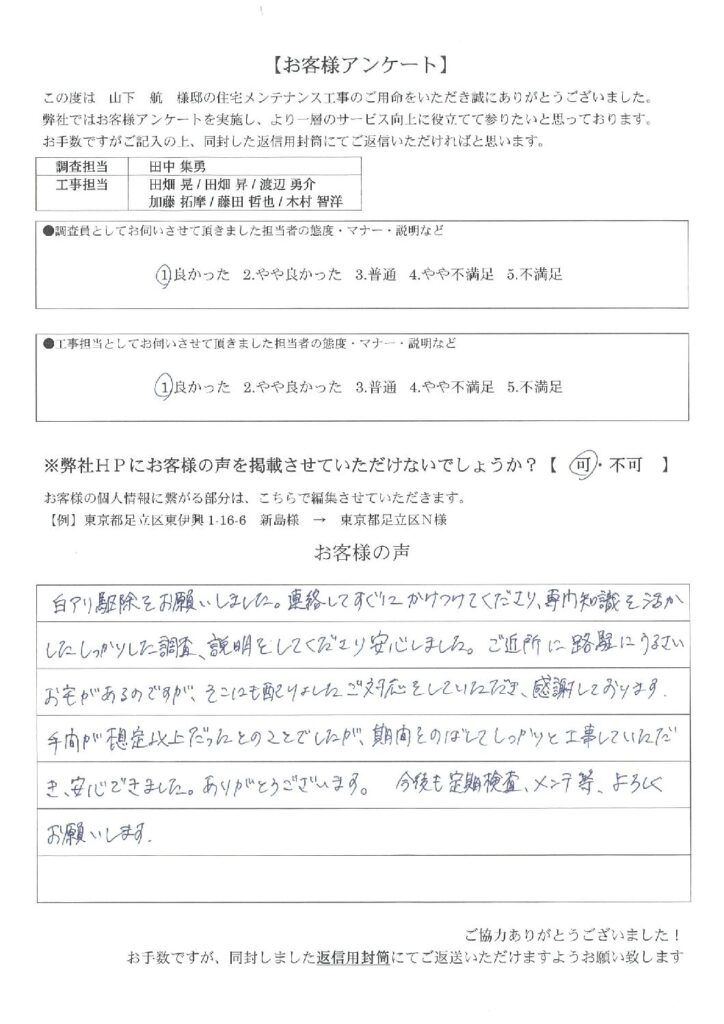 【お客様アンケート】
この度は　山下　航　様邸の住宅メンテナンス工事のご用命をいただき誠にありがとうございました。
弊社ではお客様アンケートを実施し、より一層のサービス向上に役立てて参りたいと思っております。
お手数ですがご記入の上、同封した返信用封筒にてご返信いただければと思います。
調査担当　田中 集勇
工事担当　田畑 晃 / 田畑 昇 / 渡辺 勇介
加藤 拓摩 / 藤田 哲也 / 木村 智洋
●調査員としてお伺いさせて頂きました担当者の態度・マナー・説明など
1良かった　2.やや良かった　3.普通　4.やや不満足　5.不満足
●工事担当としてお伺いさせて頂きました担当者の態度・マナー・説明など
1良かった　2.やや良かった　3.普通　4.やや不満足　5.不満足
※弊社ＨＰにお客様の声を掲載させていただけないでしょうか？【　可・不可　】
お客様の個人情報に繋がる部分は、こちらで編集させていただきます。
【例】東京都足立区東伊興 1-16-6　新島様　→　東京都足立区Ｎ様
お客様の声
白アリ駆除をお願いしました。連絡してすぐにかけつけてくださり、専門知識を活か
したしっかりした調査、説明をしてくださり安心しました。ご近所に路駐にうるさい
お宅があるのですが、そこにも配りょしたご対応をしていただき、感謝しております.
手間が想定以上だったとのことでしたが、期間をのばしてしっかりと工事していただ
き、安心できました。ありがとうございます。　今後も定期検査、メンテ等、よろしく
お願いします.
ご協力ありがとうございました！
お手数ですが、同封しました返信用封筒にてご返送いただけますようお願い致します